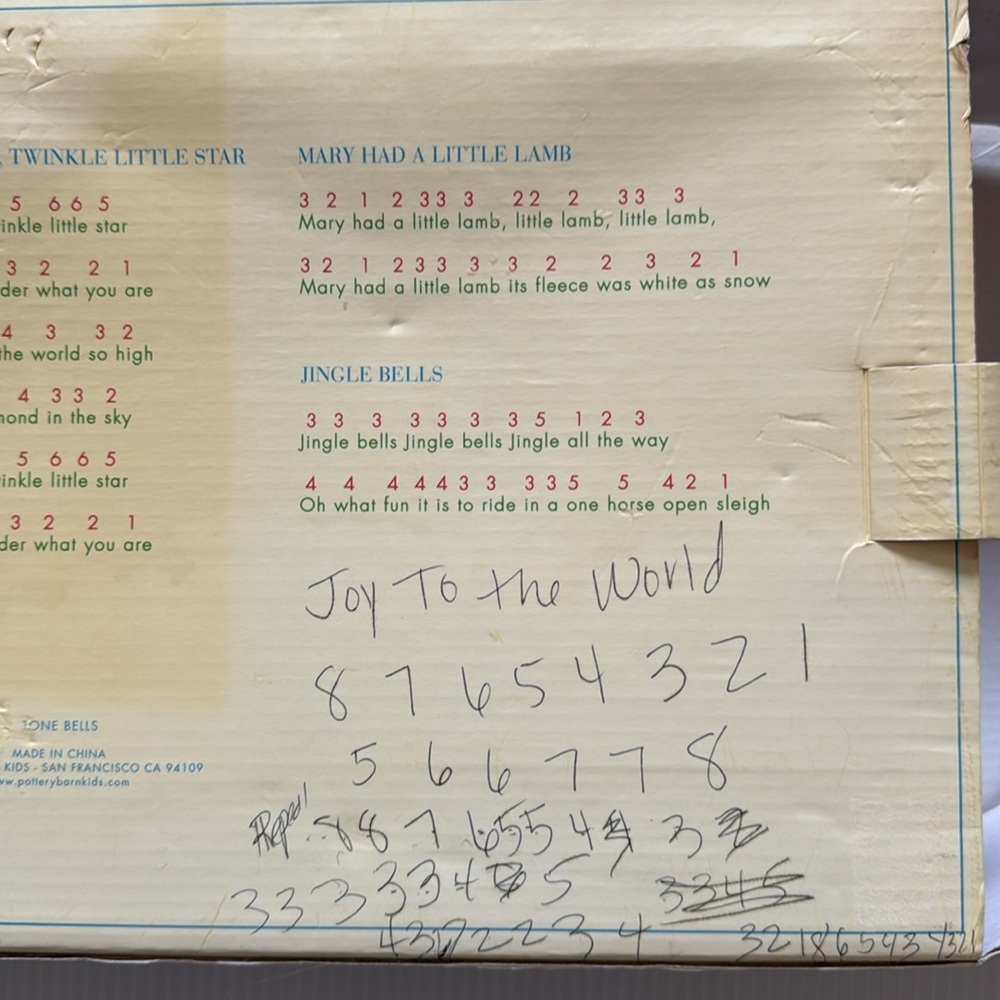 , TWINKLE LITTLE STAR
5 6 6 5
inkle little star
3 2 2 1
der what you are
4 3 3 2
the world so high
4 3 3 2
mond in the sky
5 6 6 5
inkle little star
3 2 2 1
der what you are
TONE BELLS
MADE IN CHINA
KIDS - SAN FRANCISCO CA 94109
ww.potterybarnkids.com
MARY HAD A LITTLE LAMB
3 2 1 2 3 3 3 2 2 2 3 3 3
Mary had a little lamb, little lamb, little lamb,
3 2 1 2 3 3 3 3 2 2 3 2 1
Mary had a little lamb its fleece was white as snow
JINGLE BELLS
3 3 3 3 3 3 3 5 1 2 3
Jingle bells Jingle bells Jingle all the way
4 4 4 4 4 3 3 3 3 5 5 4 2 1
Oh what fun it is to ride in a one horse open sleigh
Joy To the World
8 7 6 5 4 3 2 1
5 6 6 7 7 8
Repeat 8 8 7 6 5 5 4 3
3 3 3 3 3 4 5
4 3 2 2 3 4 3 2 1 8 6 5 4 3 4 3 2 1